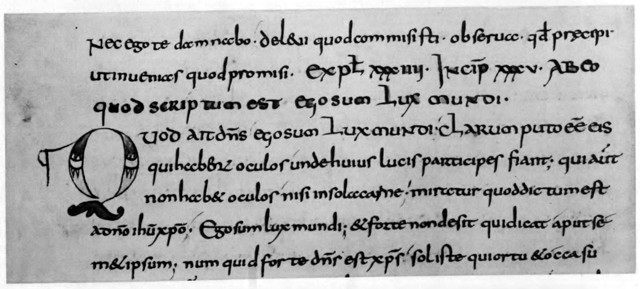 Nec ego te damnabo · deleui quod commisisti · obserua · qd̄ precipi ·
ut inuenias quod promisi · Expl̄ xxxiiii · Incip̄ xxxv · AB eo
quod scriptum est ego sum Lux mundi ·
QUOD AIT dn̄s ego sum Lux mundi · clarum puto eē eis
qui habent oculos unde huius lucis participes fiant; qui aūt
non habent oculos nisi in sola carne; miretur quod dictum est
a dn̄o ih̄u xp̄o · Ego sum lux mundi; & forte non desit qui dicat aput se
m&ipsum; num quid forte dn̄s est xp̄s sol iste qui ortu & occasu